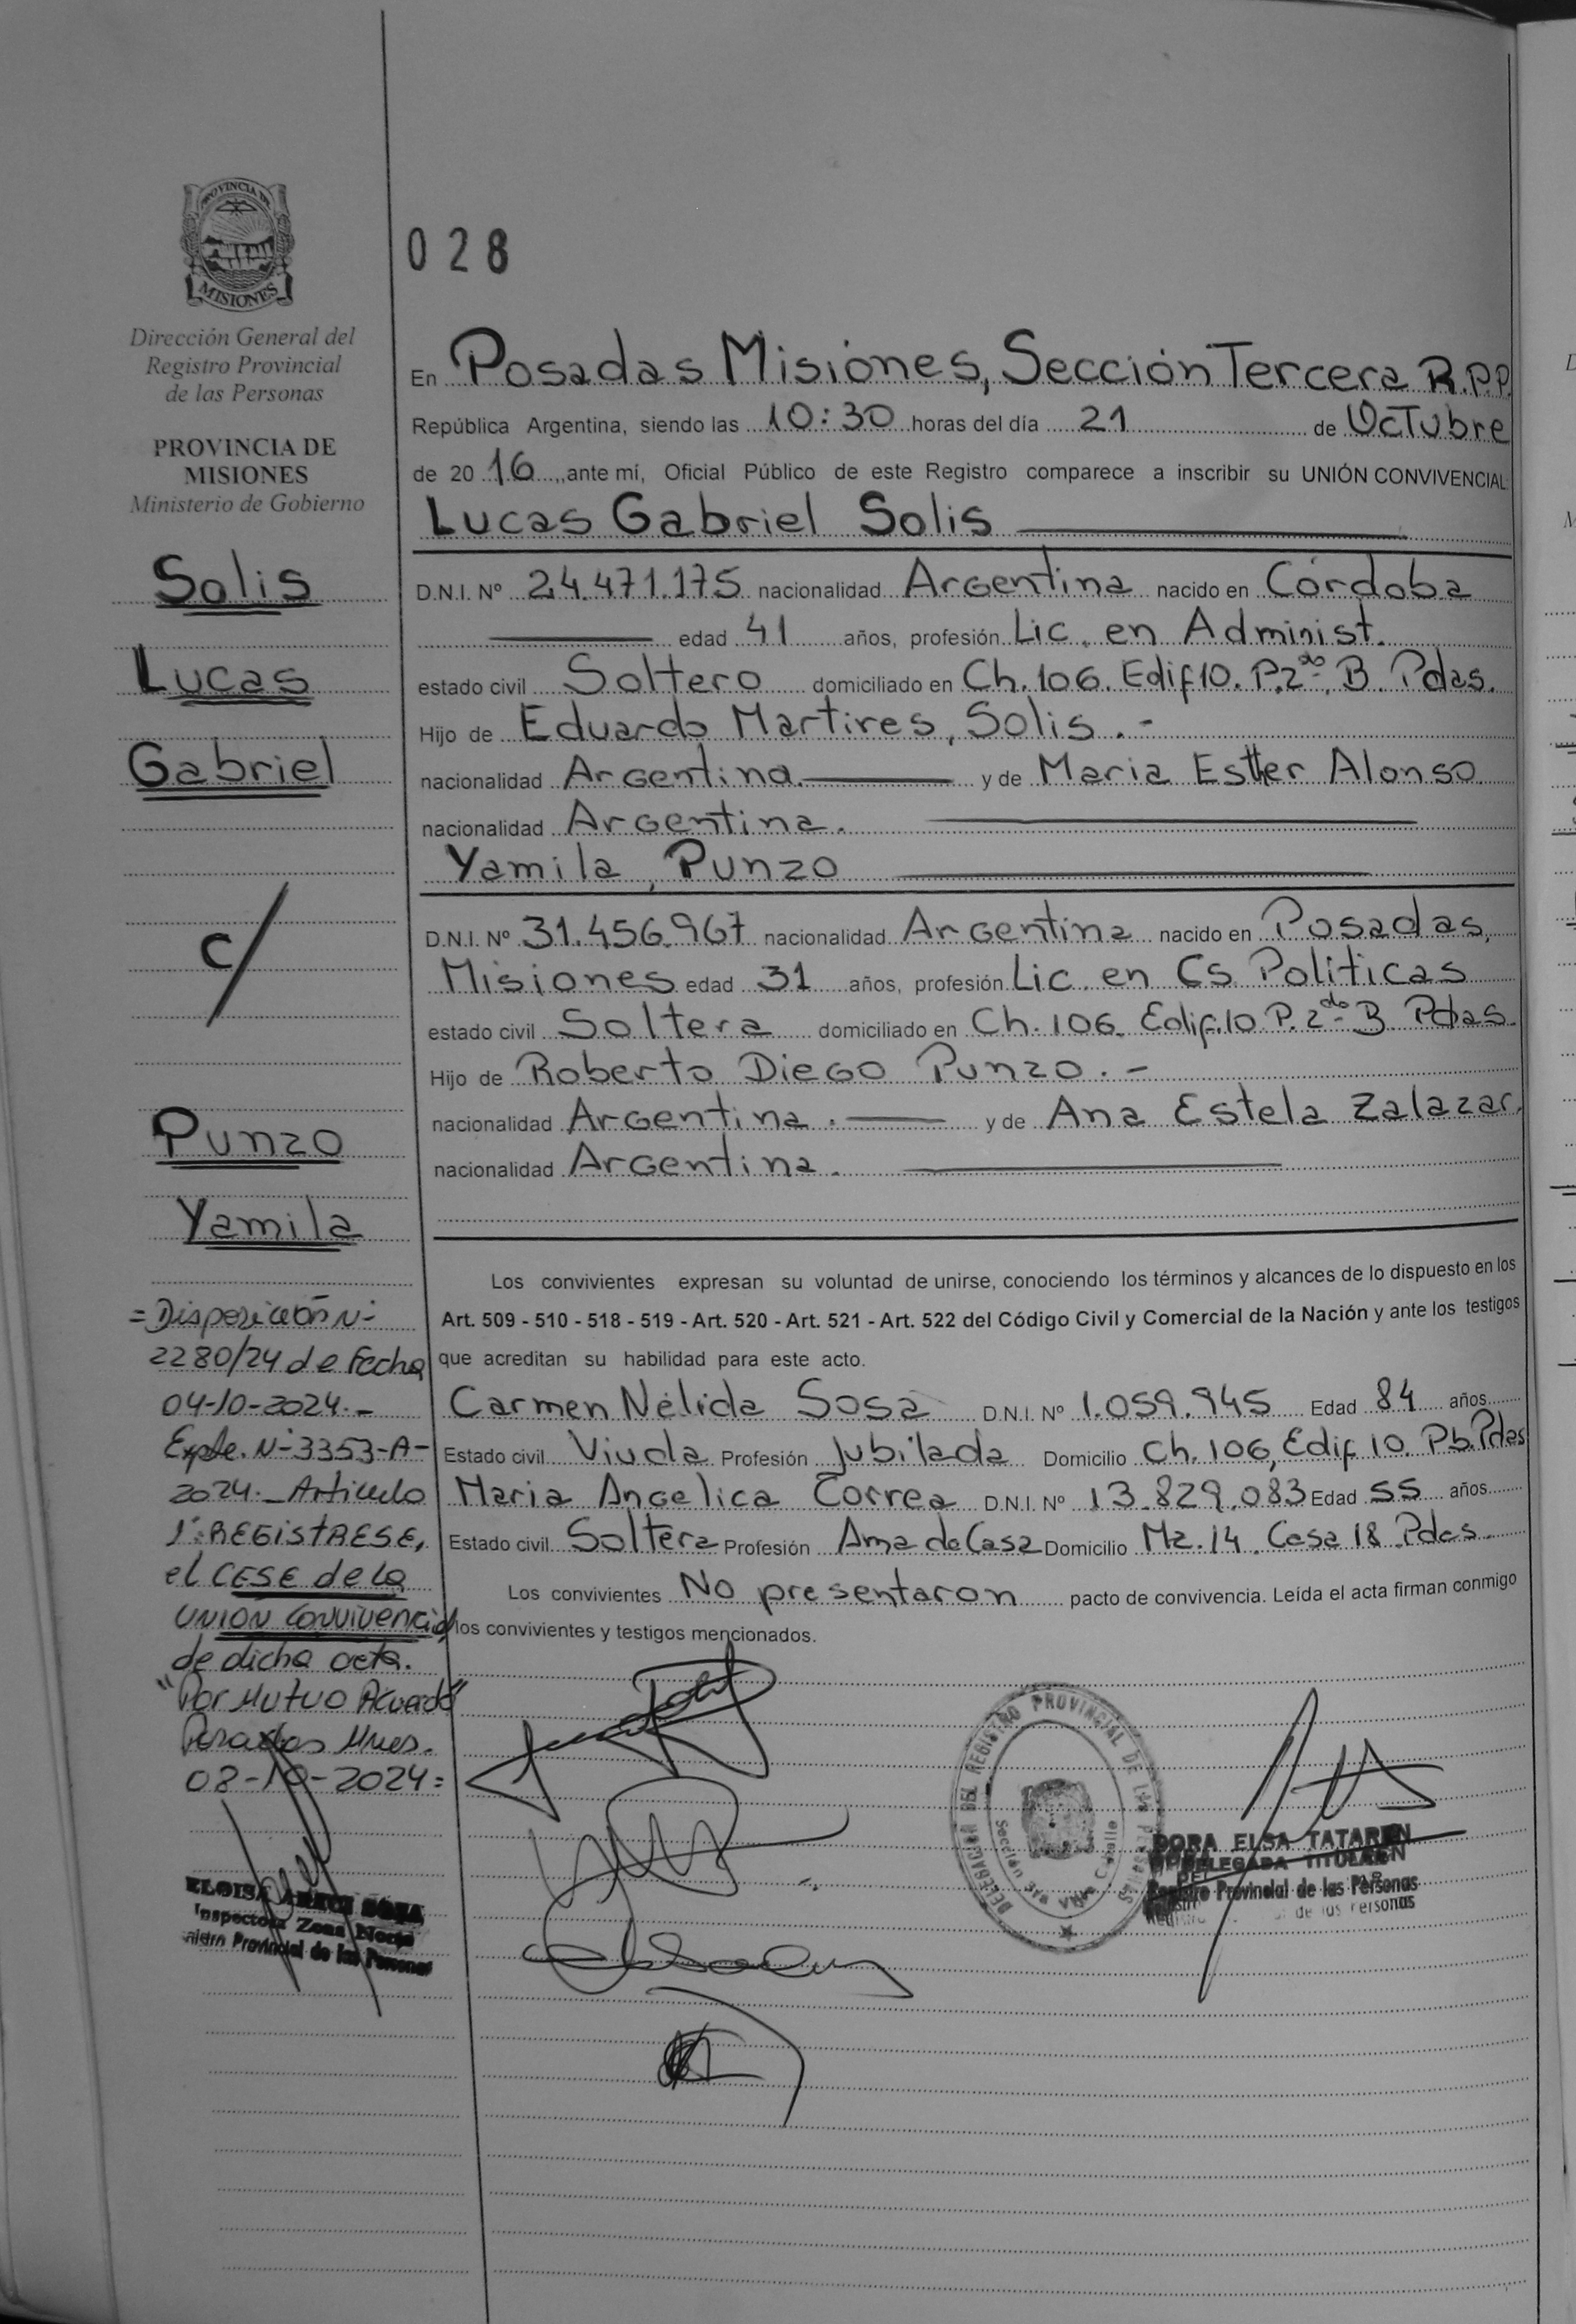 PROVINCIA DE
MISIONES
Dirección General del
Registro Provincial
de las Personas
PROVINCIA DE
MISIONES
Ministerio de Gobierno
Solis
Lucas
Gabriel
c/
Punzo
Yamila
= Disposición N-
2280/24 de Fecha
04-10-2024.-
Expte. N-3353-A-
2024._ Artículo
1°: REGISTRESE,
el CESE de la
UNION CONVIVENCIAL
de dicha acta.
"Por Mutuo Acuerdo"
Posadas Mnes.
08-10-2024=
Inspectora Zona Norte
Provincial de las Personas
028
En Posadas Misiones, Sección Tercera R.P.P.
República Argentina, siendo las 10:30 horas del día 21 de Octubre
de 2016, ante mí, Oficial Público de este Registro comparece a inscribir su UNIÓN CONVIVENCIAL:
Lucas Gabriel Solis
D.N.I. Nº 24.471.175 nacionalidad Argentina nacido en Córdoba
edad 41 años, profesión Lic. en Administ.
estado civil Soltero domiciliado en Ch.106. Edif10. P.2do. B. Pdas.
Hijo de Eduardo Martires, Solis.-
nacionalidad Argentina. y de Maria Esther Alonso
nacionalidad Argentina.
Yamila, Punzo
D.N.I. Nº 31.456.967 nacionalidad Argentina nacido en Posadas,
Misiones edad 31 años, profesión Lic. en Cs. Políticas
estado civil Soltera domiciliado en Ch.106. Edif.10 P.2do- B Pdas.
Hijo de Roberto Diego Punzo.-
nacionalidad Argentina. y de Ana Estela Zalazar.
nacionalidad Argentina.
Los convivientes expresan su voluntad de unirse, conociendo los términos y alcances de lo dispuesto en los
Art. 509 - 510 - 518 - 519 - Art. 520 - Art. 521 - Art. 522 del Código Civil y Comercial de la Nación y ante los testigos
que acreditan su habilidad para este acto.
Carmen Nélida Sosa D.N.I. Nº 1.059.945 Edad 84 años
Estado civil Viuda Profesión Jubilada Domicilio Ch.106, Edif 10. Pb. Pdas
Maria Angelica Correa D.N.I. Nº 13.829.083 Edad 55 años
Estado civil Soltera Profesión Ama de Casa Domicilio Mz.14. Casa 18. Pdas.
Los convivientes No presentaron pacto de convivencia. Leída el acta firman conmigo
los convivientes y testigos mencionados.
DELEGACION DEL REGISTRO PROVINCIAL DE LAS PERSONAS
Sección 3ra
DORA ELSA TATAREN
DELEGADA TITULAR
Registro Provincial de las Personas